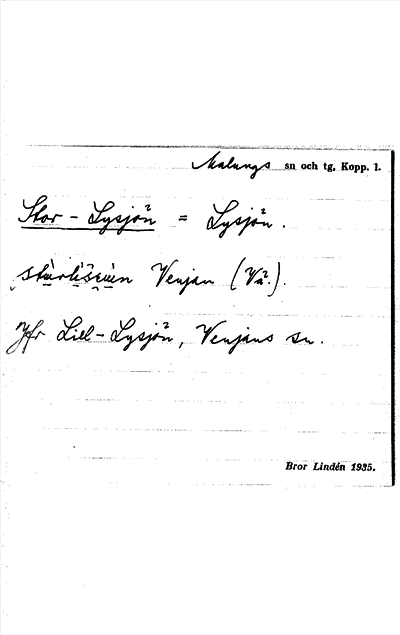 Malungs sn och tg, Kopp. l.
Stor-Lysjön = Lysjön.
Venjan (Vä.).
Jfr Lill-Lysjön, Venjans sn.
Bror Lindén 1935.